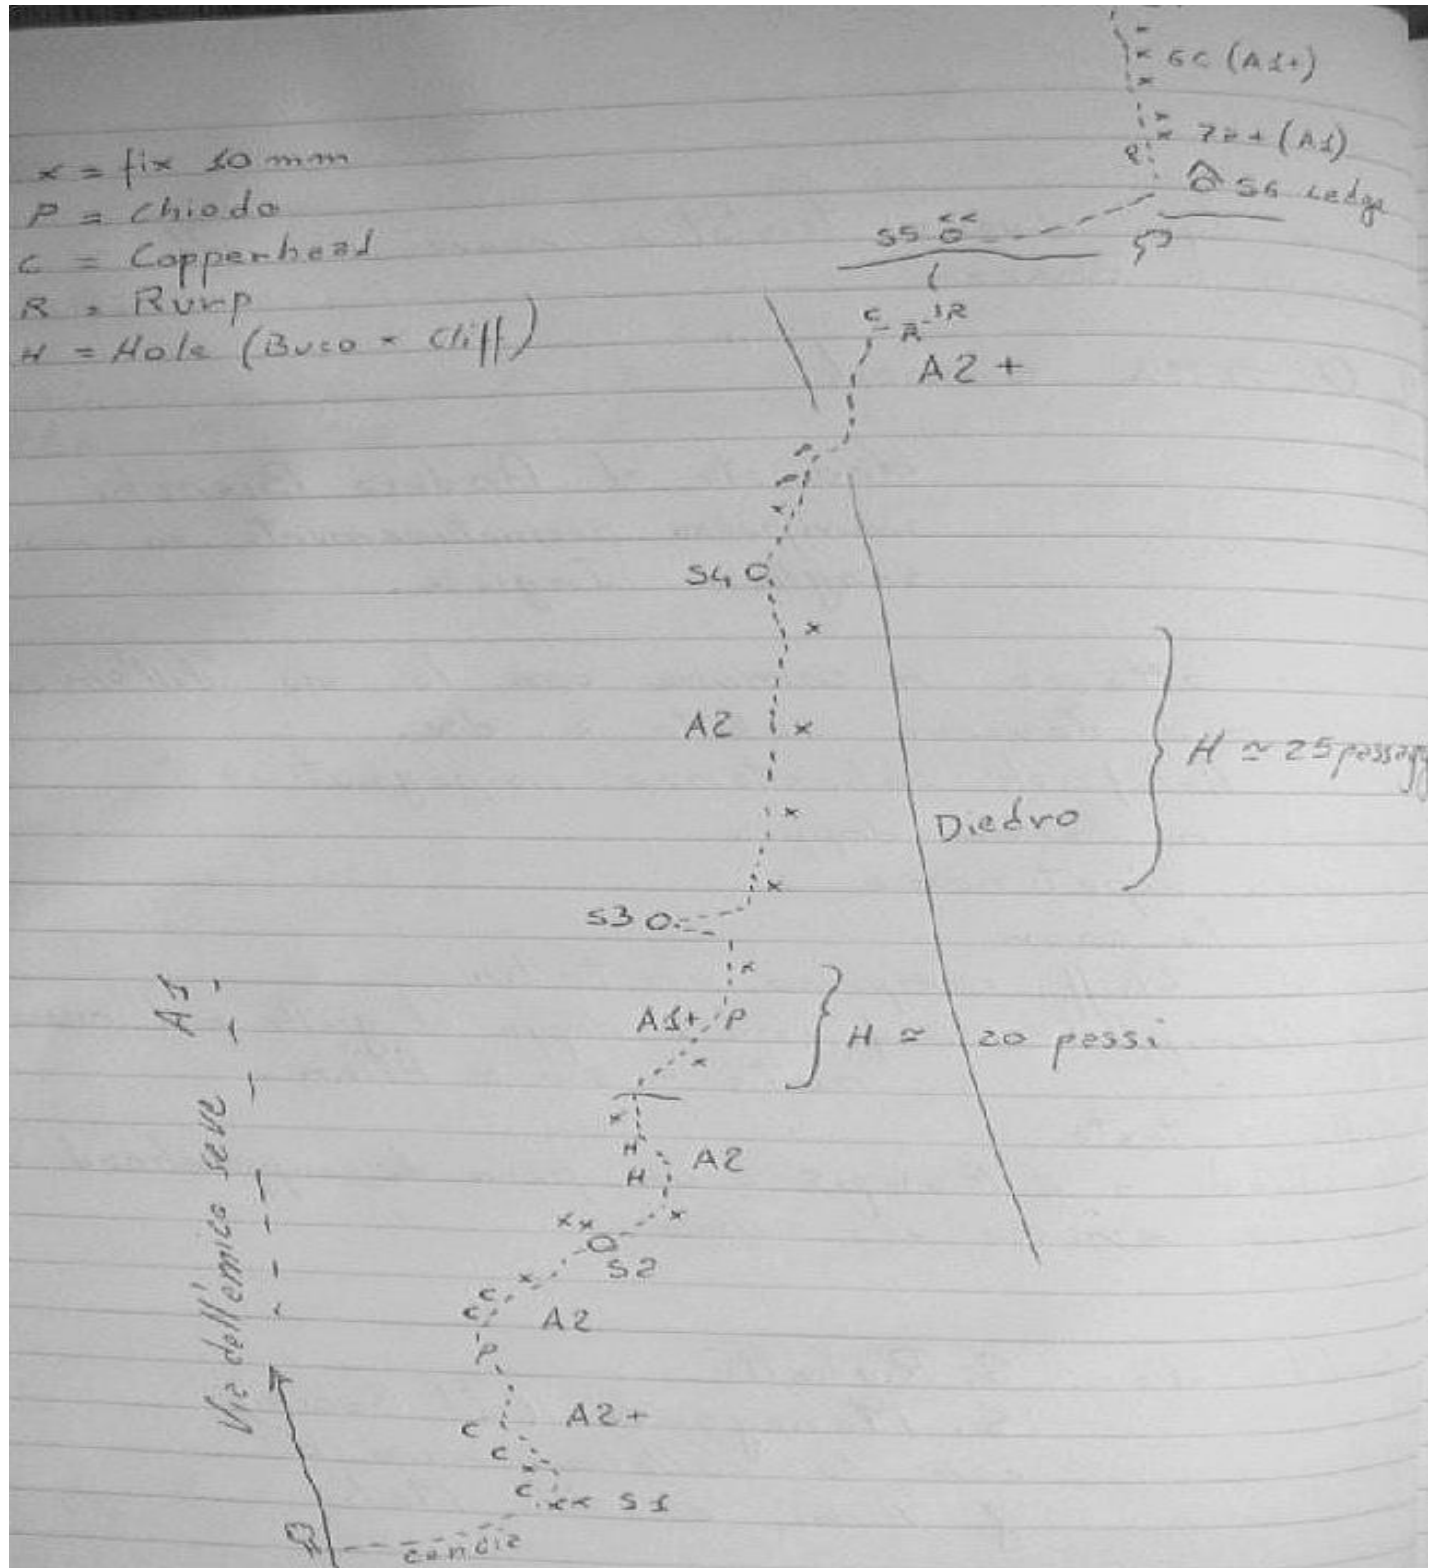 x = fix 10 mm
P = Chiodo
C = Copperhead
R = Rurp
H = Hole (Buco x Cliff)
x 6c (A1+)
x
x
x 7a+ (A1)
S6 Ledge
S5
C R 1R
A2+
P
P
x
S4
x
A2 x
H ≃ 25 passaggi
x
Diedro
x
S3
x
A1+ P
H ≃ 20 passi
x
x
H
H A2
x x x
S2
x
C
C A2
P
A2+
C
C
x
C xx S1
cengia
Via dell'amico seve A1